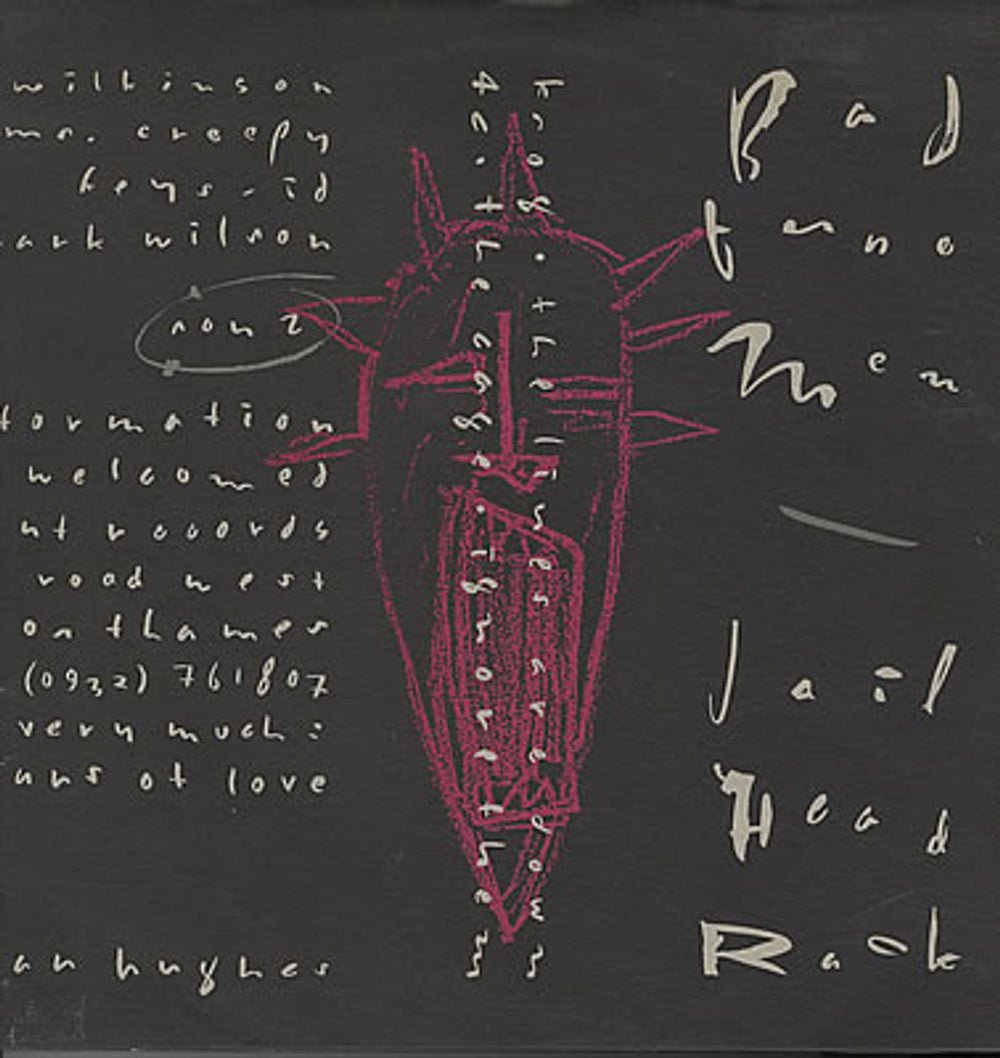 wilkinson
mr. creepy
keys - id
ark wilson
formation
welcomed
nt records
road west
on thames
(0932) 761807
very much :
uns of love
an hughes
the lines are down
the cage. ignore them
Bad
tune
Men
Jail
Head
Rock